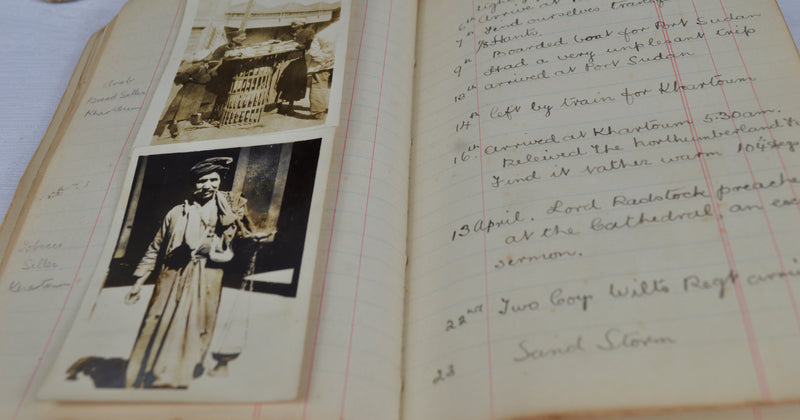 Arab
Bread Seller
Khartoum
Tobacco
Seller
Khartoum
6th Arrive at
7th Find ourselves
S/Hants.
Boarded boat for Port Sudan
9th Had a very unplesant trip
12th arrived at Port Sudan
14th left by train for Khartoum
16th. Arrived at Khartoum 5.30am.
Releived The Northumberland
Find it rather warm 104°
13 April. Lord Radstock preache
at the Cathedral, an
sermon.
22nd Two Coy Wilts Regt arri
23 Sand Storm